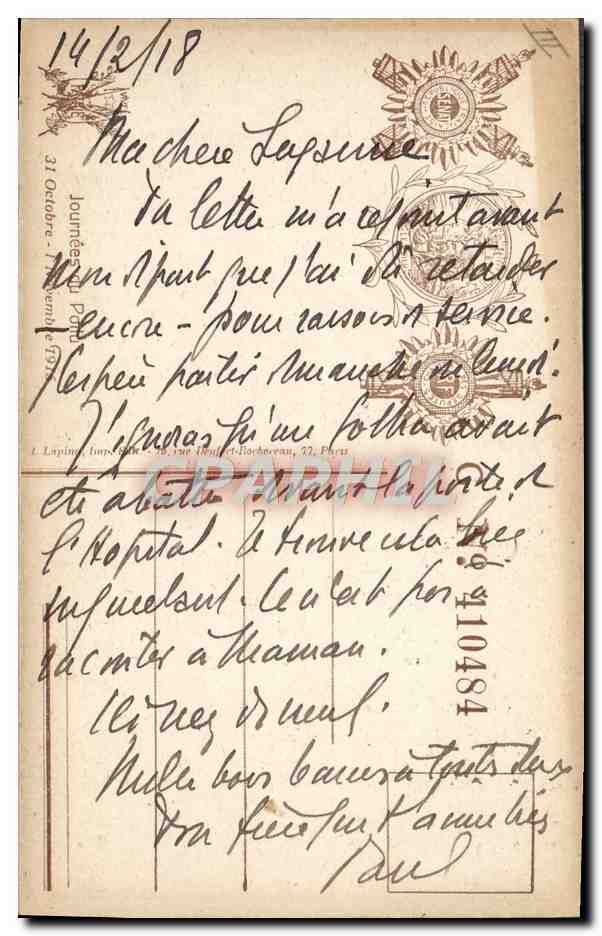 14/2/18
III
Ma chère
Ta lettre m'a rejoint avant
mon départ que j'ai dû retarder
- encore - pour raisons de service.
J'espère partir dimanche ou lundi.
J'ignorais qu'un Gotha avait
été abattu devant la porte de
l'Hopital. Je trouve cela très
inquiétant. Ce n'est pas à
raconter à Maman.
Ici rien de neuf.
Mille bons baisers à toutes deux
Ton frère qui t'aime bien
Paul
Journées du Poilu
31 Octobre - 1 Novembre 191
I. Lapina, Imp. Edit - 75, rue Denfert-Rochereau, 77, Paris
GRAPHILL
C
Nº 410484